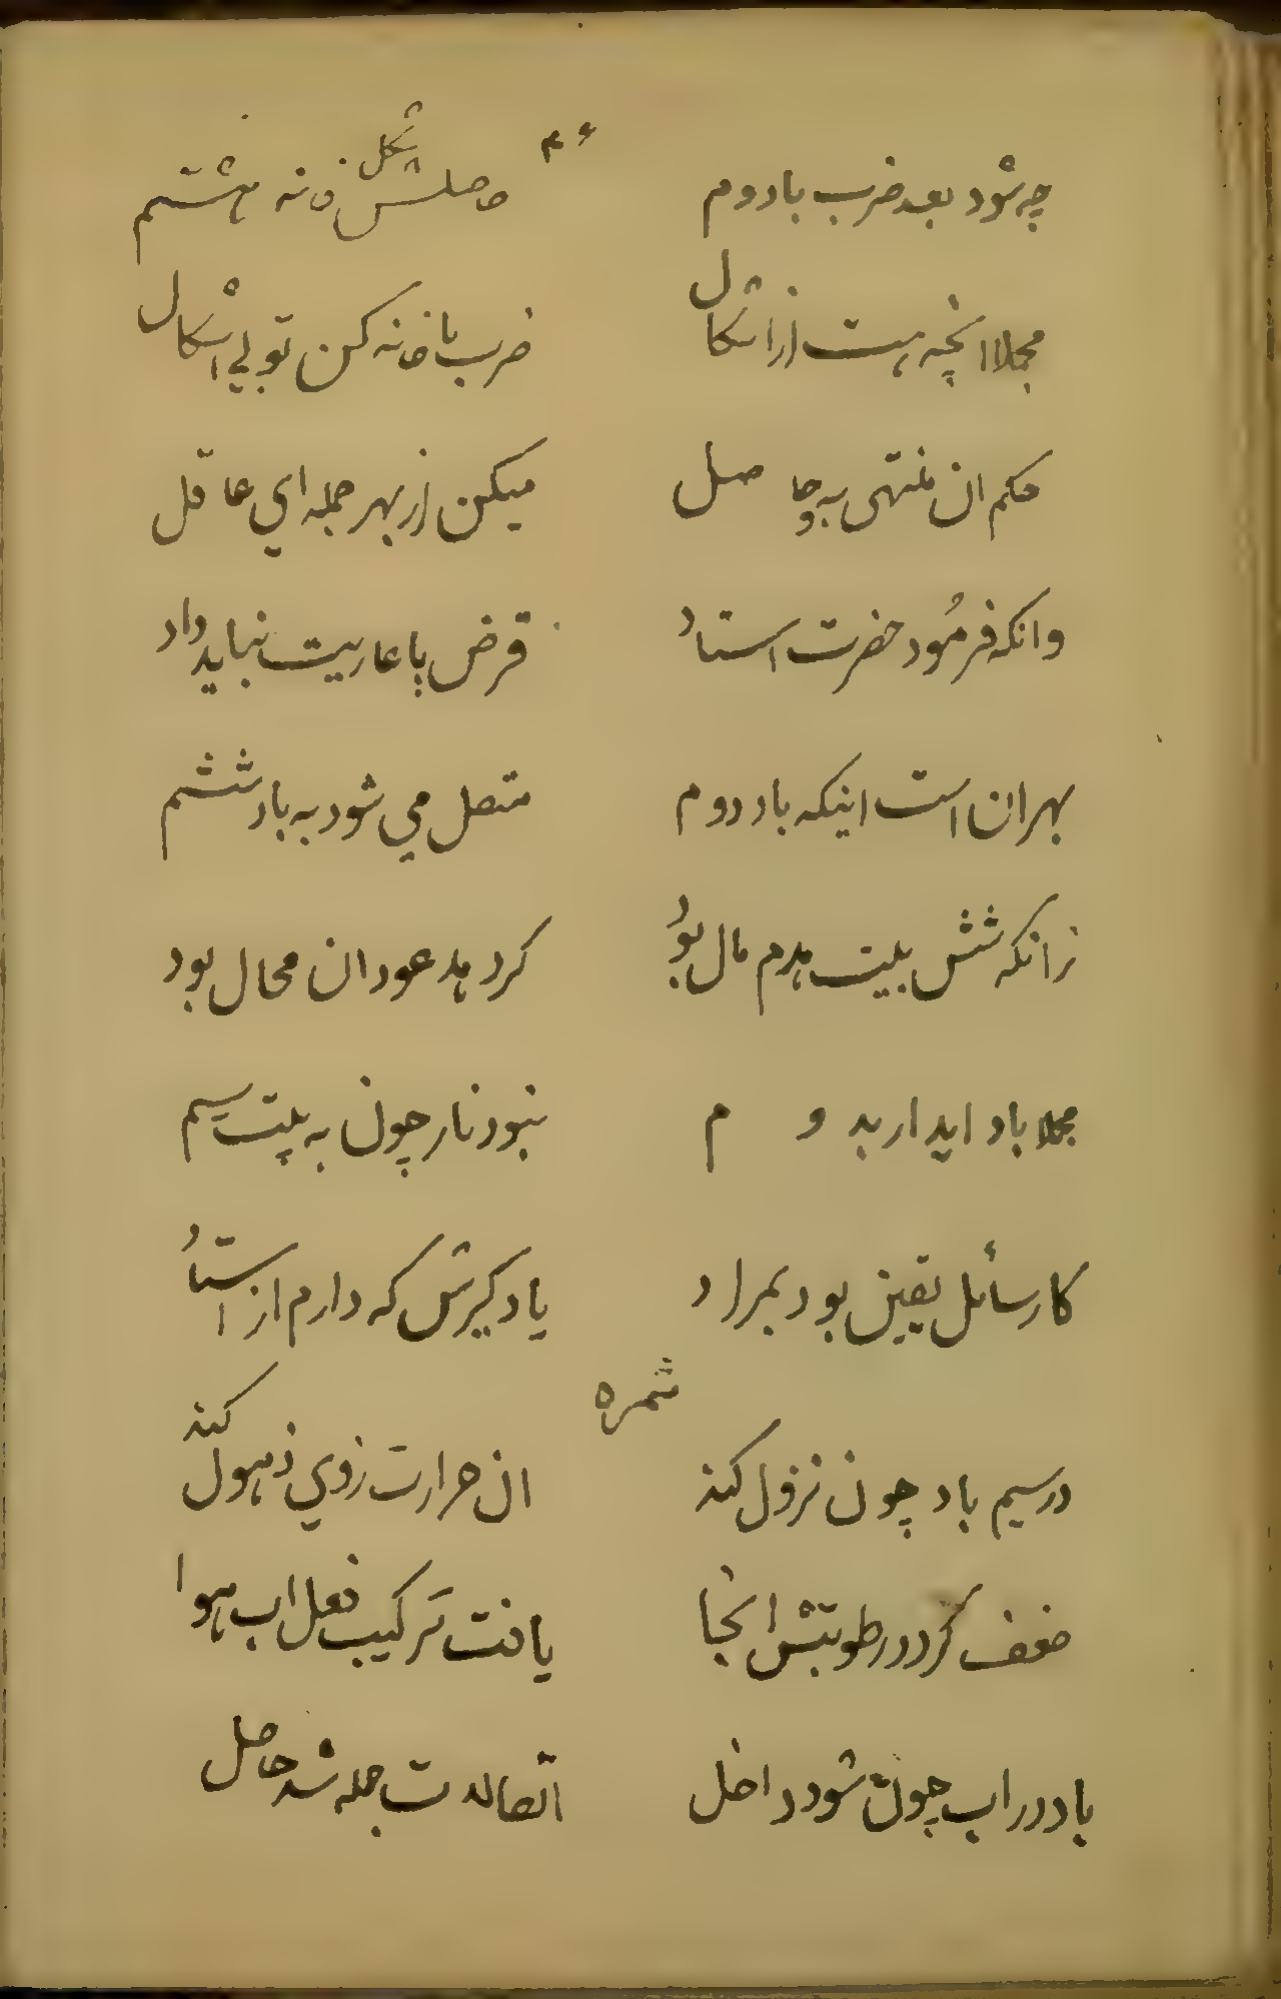 ۴۶
چه شود بعد ضرب باد دوم حاصلش شکل خانه هشتم
مجملا انچه هست از اشکال ضرب با خانه کن تو بی اشکال
حکم ان منتهی به و حاصل میکن از بهر جمله ای عاقل
وانکه فرمُود حضرت استاد قرض یا عاریت نباید داد
بهر ان است اینکه باد دوم متصل می شود به باد ششم
زانکه شش بیت هدم مال بوُد کرد هد عود ان محال بود
مجملا باد اید ار بد و م نبود نار چون به بیت سیم
کار سائل یقین بود بمراد یاد گیرش که دارم از استاُد
ثمره
در سیم باد چون نزول کند ان حرارت زوی ذهول کند
ضعف گردد رطوبتش انجا یافت ترکیب فعل اب هوا
باد در اب چون شود داخل اتصالات جمله شد حاصل